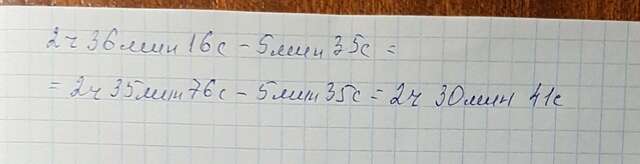 2ч 36мин 16с - 5мин 35с =
= 2ч 35мин 76с - 5мин 35с = 2ч 30мин 41с